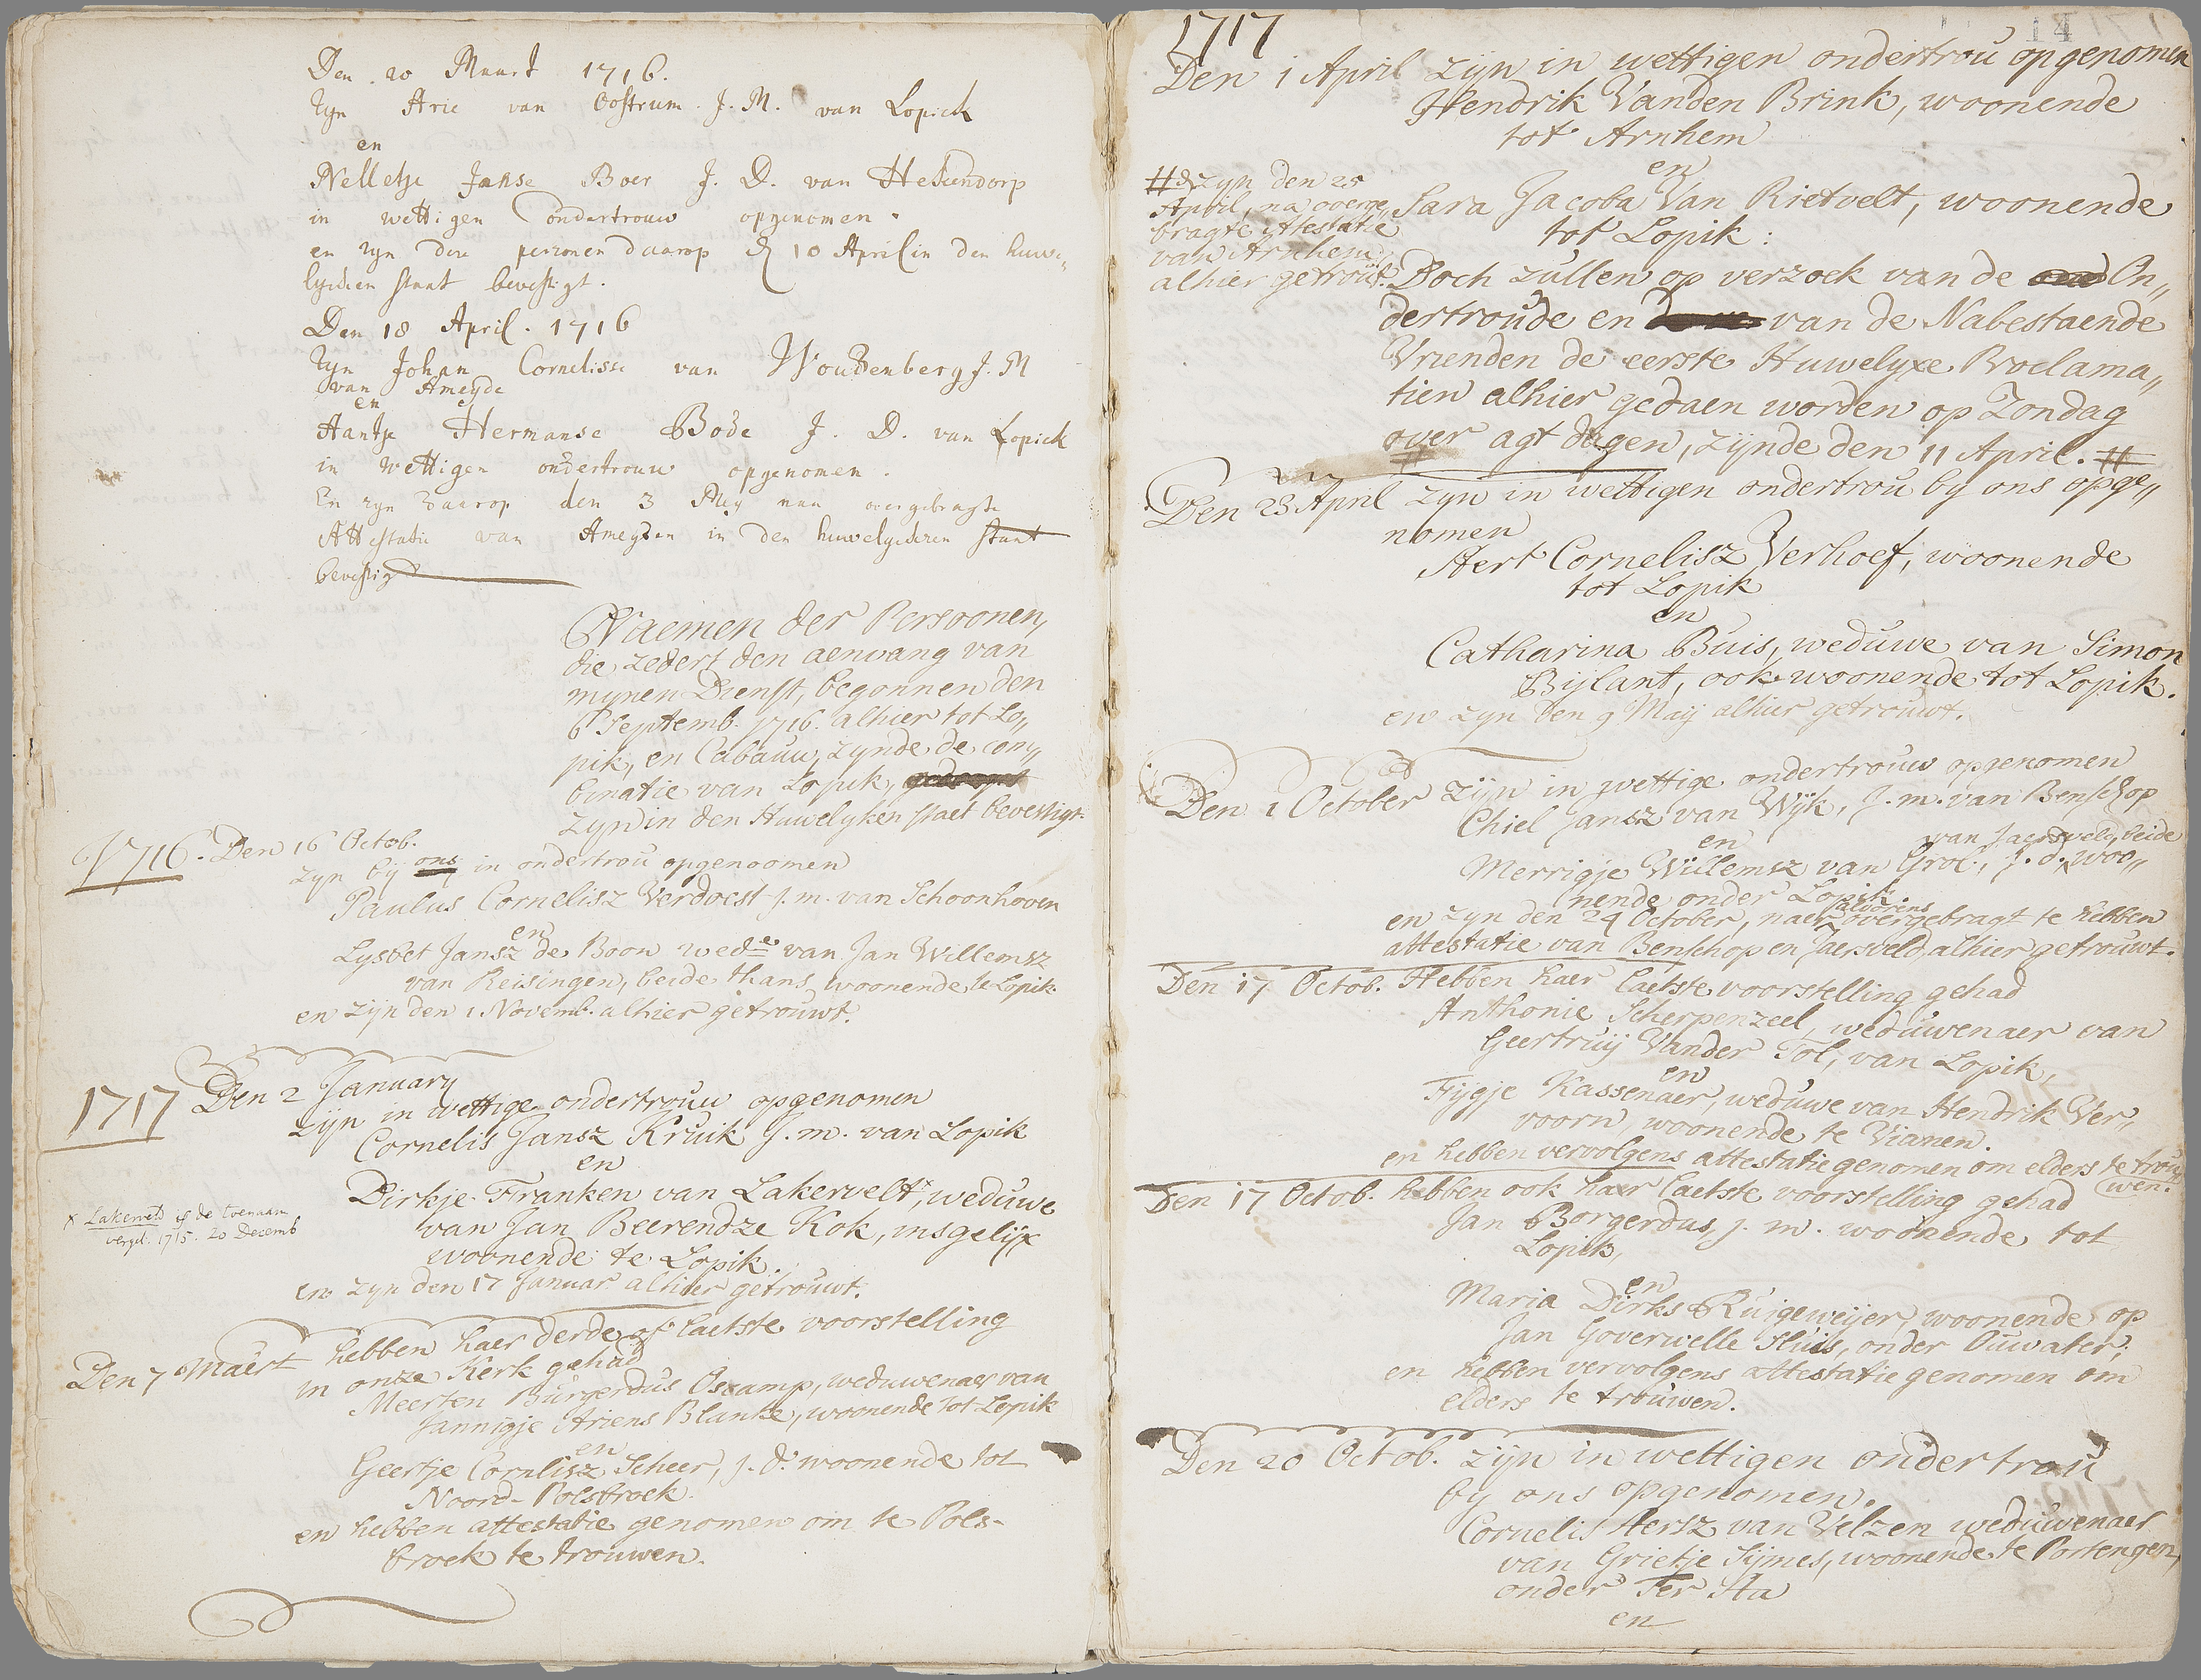 Den 20 Maart 1716.
Zyn Arie van Oostrum J. M. van Lopick
en
Nelletje Janse Boer J. D. van Hekendorp
in wettigen ondertrouw opgenomen.
en zyn dese personen daarop den 10 April in den huwe„
lycken staat bevestigt.
Den 18 April. 1716
Zyn Johan Cornelisse van Woudenberg J. M
van Ameyde
en
Aantje Hermanse Bode J. D. van Lopick
in wettigen ondertrouw opgenomen.
En zyn daarop den 3 Mey naa overgebragte
Attestatie van Ameyden in den huwelyckeren staat
bevestigd
Naemen der Persoonen,
die zedert den aenvang van
mynen Dienst, begonnen den
6 Septemb. 1716. alhier tot Lo„
pik, en Cabauw, zynde de com„
binatie van Lopik, gedoopt
zyn in den Huwelyken staet bevestigt.
1716. Den 16 Octob.
zyn bij ons in ondertrou opgenoomen
Paulus Cornelisz Verdoest j. m. van Schoonhoven
en
Lysbet Jansz de Boon wede van Jan Willemsz
van Reisingen, beide thans woonende te Lopik.
en zijn den 1 Novemb. alhier getrouwt.
1717 Den 2 January
zijn in wettige ondertrouw opgenomen
Cornelis Jansz Kruik J. m. van Lopik
en
Dirkje Franken van Lakervelt x, weduwe
van Jan Beerendze Kok, insgelijx
woonende te Lopik.
x Lakervelt is de toenaam
vergel. 1715. 20 Decemb
en zyn den 17 Januar alhier getrouwt.
Den 7 Maert hebben haer derde of laetste voorstelling
in onze Kerk gehad
Meerten Burgerdus Oscamp, weduwenaer van
Jannigje Ariens Blanke, woonende tot Lopik
en
Geertje Cornlisz Scheer, j. d. woonende tot
Noord-Polsbroek.
en hebben attestatie genomen om te Pols-
broek te trouwen.
14
1717
Den 1 April zijn in wettigen ondertrou opgenomen
Hendrik Vanden Brink, woonende
tot Arnhem
en
Sara Jacoba Van Rietvelt, woonende
tot Lopik:
# zyn den 25
April, na overge„
bragte Attestatie
van Arnhem,
alhier getrout.
Doch zullen op verzoek van de On„
dertroude en van de Nabestaende
Vrienden de eerste Huwelyxe Proclama„
tien alhier gedaen worden op Zondag
over agt dagen, zijnde den 11 April. #
Den 23 April zyn in wettigen ondertrou by ons opge„
nomen
Aert Cornelisz Verhoef, woonende
tot Lopik
en
Catharina Buis, weduwe van Simon
Bijlant, ook woonende tot Lopik.
en zyn den 9 Maij alhier getrouwt.
Den 1 October zijn in wettige ondertrouw opgenomen
Chiel Jansz van Wijk, J. m. van Benschop
en
van Jaersveld, beide
Merrigje Willemsz van Grol, J. d. woo„
nende onder Lopik.
alvorens
en zyn den 24 October, naer overgebragt te hebben
attestatie van Benschop en Jaersveld, alhier getrouwt.
Den 17 Octob. Hebben haer laetste voorstelling gehad
Anthonie Scherpenzeel, weduwenaer van
Geertruij Vander Tol, van Lopik,
en
Fijgje Kassenaer, weduwe van Hendrik Ver„
voorn, woonende te Vianen.
en hebben vervolgens attestatie genomen om elders te trou„
wen.
Den 17 Octob. hebben ook haer laetste voorstelling gehad
Jan Borgerdus, j. m. woonende tot
Lopik,
en
Maria Dirks Ruigeweijer, woonende op
Jan Goverwelle Sluis, onder Ouwater;
en hebben vervolgens attestatie genomen om
elders te trouwen.
Den 20 Octob. zijn in wettigen ondertrou
by ons opgenomen.
Cornelis Aersz van Velzen weduwenaer
van Grietje Sijmes, woonende te Portengen,
onder Ter Aa
en